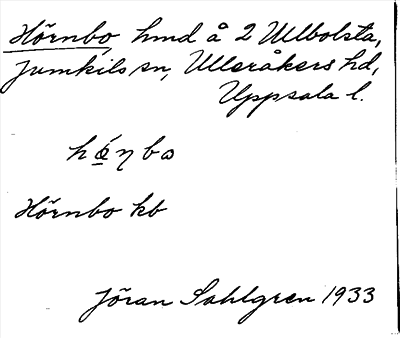 Hörnbo, hmd å 2 Ulbolsta,
Jumkils sn, Ulleråkers hd,
Uppsala l.
Hörnbo kb
Jöran Sahlgren 1933